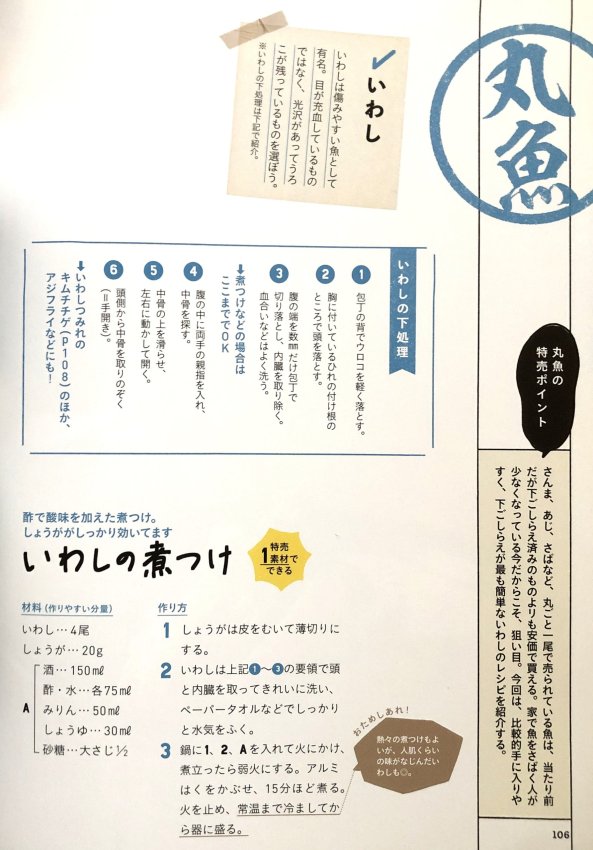 丸魚
丸魚の
特売ポイント
さんま、あじ、さばなど、丸ごと一尾で売られている魚は、当たり前
だが下ごしらえ済みのものよりも安価で買える。家で魚をさばく人が
少なくなっている今だからこそ、狙い目。今回は、比較的手に入りや
すく、下ごしらえが最も簡単ないわしのレシピを紹介する。
✓いわし
いわしは傷みやすい魚として
有名。目が充血しているもの
ではなく、光沢があってうろ
こが残っているものを選ぼう。
※いわしの下処理は下記で紹介。
いわしの下処理
1 包丁の背でウロコを軽く落とす。
2 胸に付いているひれの付け根の
ところで頭を落とす。
3 腹の端を数㎜だけ包丁で
切り落とし、内臓を取り除く。
血合いなどはよく洗う。
↓煮つけなどの場合は
ここまででOK
4 腹の中に両手の親指を入れ、
中骨を探す。
5 中骨の上を滑らせ、
左右に動かして開く。
6 頭側から中骨を取りのぞく
(=手開き)。
↓いわしつみれの
キムチチゲ(P108)のほか、
アジフライなどにも!
酢で酸味を加えた煮つけ。
しょうががしっかり効いてます
いわしの煮つけ
特売
1素材で
できる
材料(作りやすい分量)
いわし…4尾
しょうが…20g
A
酒…150㎖
酢・水…各75㎖
みりん…50㎖
しょうゆ…30㎖
砂糖…大さじ½
作り方
1 しょうがは皮をむいて薄切りに
する。
2 いわしは上記❶〜❸の要領で頭
と内臓を取ってきれいに洗い、
ペーパータオルなどでしっかり
と水気をふく。
3 鍋に1、2、Aを入れて火にかけ、
煮立ったら弱火にする。アルミ
はくをかぶせ、15分ほど煮る。
火を止め、常温まで冷ましてか
ら器に盛る。
おためしあれ!
熱々の煮つけもよ
いが、人肌くらい
の味がなじんだい
わしも◎。
106